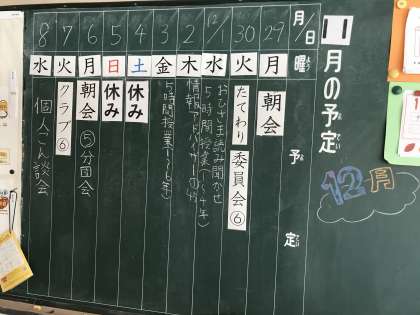 11月の予定
12月
月/日 曜 予定
29 月 朝会
30 火 たてわり 委員会⑥
12/1 水 おひさま読み聞かせ
5時間授業(1~4年)
2 木 情報アドバイザー
3 金 5時間授業(1~6年)
4 土 休み
5 日 休み
6 月 朝会 ⑤分団会
7 火 クラブ⑥
8 水 個人こん談会